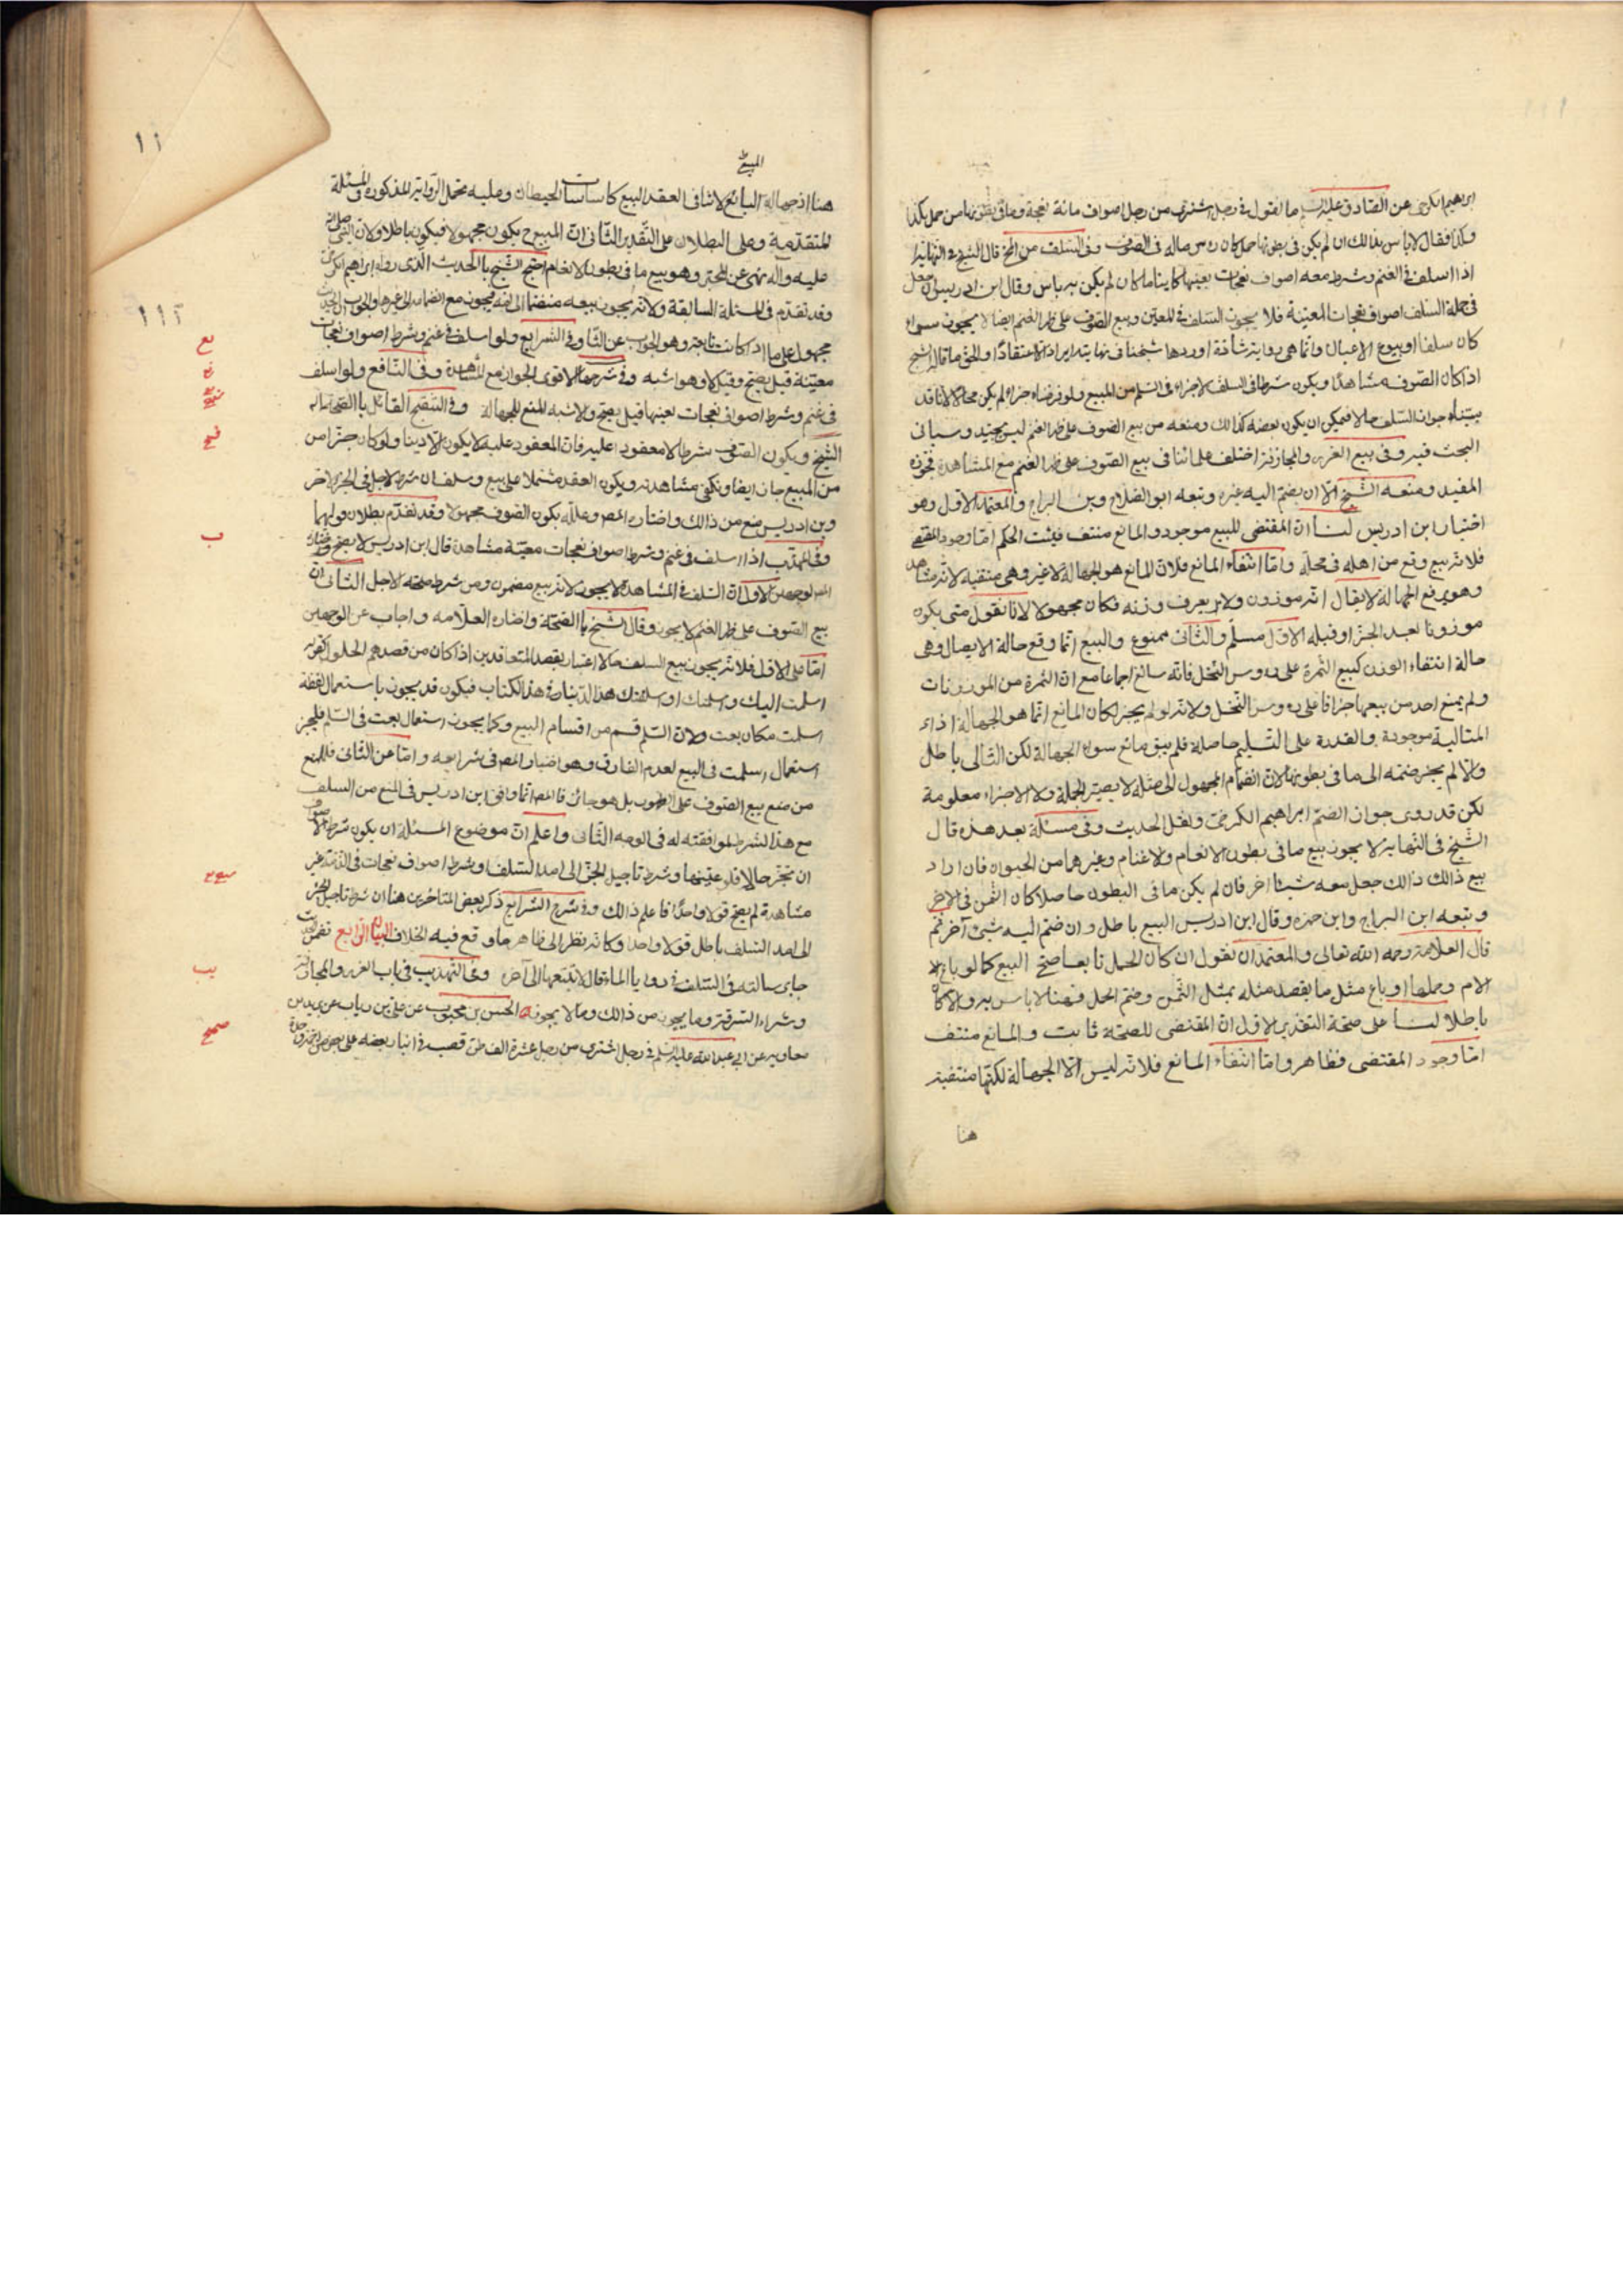 ابراهيم الكرخى عن الصادق عليه السلام ما تقول فى رجل اشترى من رجل اصواف مائة نعجة وما فى بطونها من حمل بكذا
وكذا فقال لا باس بذالك ان لم يكن فى بطونها حمل كان راس ماله فى الصوف وفى السلف من المخ قال الشيخ فى النهاية
اذا اسلف فى الغنم وشرط معه اصواف نعجات بعينها كاينا ما كان لم يكن به باس وقال ابن ادريس ان جعل
فى جملة السلف اصواف نعجات المعينة فلا يجوز السلف فى المعين وبيع الصوف على ظهر الغنم ايضا لا يجوز سواء
كان سلفا او بيوع الاعيان وانما هى رواية شاذة اوردها شيخنا فى نهايته ايرادا لا اعتقادا والحق ما قاله الشيخ
اذا كان الصوف مشاهدا ويكون شرطا فى السلف لا جزاء فى السلم من المبيع ولو فرضناه جزاء لم يكن محالا لانا قد
بيناه جواز السلف حالا فيمكن ان يكون بعضه كذالك ومنعه من بيع الصوف على ظهر الغنم ليس بجيد وسياتى
البحث فيه وفى بيع الغرر والمجازفة اختلف علمائنا فى بيع الصوف على ظهر الغنم مع المشاهدة فجوزه
المفيد ومنعه الشيخ الا ان يضم اليه غيره وتبعه ابو الصلاح وبن البراج والمعتمد الاول وهو
اختيار ابن ادريس لنا ان المقتضى للبيع موجود والمانع منتف فيثبت الحكم اما وجود المقتضى
فلانه بيع وقع من اهله فى محله واما انتفاء المانع فلان المانع هو الجهالة لا غير وهى منتفية لانه مشاهد
وهو يرفع الجهالة لا يقال انه موزون ولا يعرف وزنه فكان مجهولا لانا نقول متى يكون
موزونا بعد الجز او قبله الاول مسلم والثانى ممنوع والبيع انما وقع حالة الايصال وهى
حالة انتفاء الوزن كبيع الثمرة على رءوس النخل فانه سائغ اجماعا مع ان الثمرة من الموزونات
ولم يمنع احد من بيعها جزافا على رءوس النخل ولانه لو لم يجز لكان المانع انما هو الجهالة اذاء
المتالية موجودة والقدرة على التسليم حاصلة فلم يبق مانع سواء الجهالة لكن التالى باطل
والا لم يجز ضمه الى ما فى بطونها لان انضمام المجهول الى مثله لا يصير الجملة ولا الاجزاء معلومة
لكن قد روى جواز الضم ابراهيم الكرخى ونقل الحديث وفى مسئلة بعد هذه قال
الشيخ فى النهاية لا يجوز بيع ما فى بطون الانعام والاغنام وغيرهما من الحيوان فان اراد
بيع ذالك جعل معه شيئا اخر فان لم يكن ما فى البطون حاصلا كان الثمن فى الاخر
وتبعه ابن البراج وابن حمزه وقال ابن ادريس البيع باطل وان ضم اليه شىء آخر ثم
قال العلامة رحمه الله تعالى والمعتمد ان نقول ان كان الحمل تابعا صح البيع كما لو باع
الام وحملها او باع مثل ما يقصد مثله بمثل الثمن وضم الحمل فهنا لا باس به والا كان
باطلا لنا على صحة التقدير الاول ان المقتضى للصحة ثابت والمانع منتف
اما وجود المقتضى فظاهر واما انتفاء المانع فلانه ليس الا الجهالة لكنها منتفية
هنا
١١
المبيع
هنا اذ جهالة التابع لا تنافى العقد البيع كاساسات الحيطان وعليه تحمل الرواية المذكوره والمسئلة
المتقدمة وعلى البطلان على التقدير الثانى ان المبيع ح يكون مجهولا فيكون باطلا ولان النبى صلى الله
عليه واله نهى عن المجر وهو بيع ما فى بطون الانعام احتج الشيخ بالحديث الذى رواه ابراهيم الكرخى
وقد تقدم فى المسئلة السالفة ولانه يجوز بيعه منضما الى امه فيجوز مع انضمامه الى غيرها والجواب الحديث
محمول على ما اذا كانت تابعة وهو الجواب عن الثانى وفى الشرايع ولو اسلف فى غنم وشرط اصواف نعجات
معينة قيل يصح وقيل لا وهو اشبه وفى شرحها الاقوى الجواز مع المشاهدة وفى النافع ولو اسلف
فى غنم وشرط اصواف نعجات بعينها قيل يصح والاشبه المنع للجهالة وفى التنقيح القائل بالصحة
الشيخ ويكون الصوف شرطا لا معقودا عليه فان المعقود عليه لا يكون الا دينا ولو كان جزءا من
من المبيع جاز ايضا وتكفى مشاهدته ويكون العقد مشتملا على بيع وسلف ان شرط الاجل فى الجزء الاخر
وبن ادريس منع من ذالك واختاره المصر وعلله بكون الصوف مجهولا وقد تقدم بطلان قولهما
وفى المهذب اذا اسلف فى غنم وشرط اصواف نعجات معينة مشاهدة قال ابن ادريس لا يصح واختاره
المصر لوجهين الاول ان السلف فى المشاهدة لا يجوز لانه بيع مضمون ومن شرط صحته الاجل الثانى ان
بيع الصوف على ظهر الغنم لا يجوز وقال الشيخ بالصحة واختاره العلامه واجاب عن الوجهين
اما على الاول فلانه يجوز بيع السلف حالا اعتبارا بقصد المتعاقدين اذا كان من قصدهم الحلول
اسلمت اليك واسلمتك او اسلفتك هذا الدينار فى هذا الكتاب فيكون قد يجوز باستعمال لفظة
اسلمت مكان بعت ولان السلم قسم من اقسام البيع وكما يجوز استعمال بعت فى السلم فليجز
استعمال اسلمت فى البيع لعدم الفارق وهو اختيار المصر فى شرايعه واما عن الثانى فللمنع
من منع بيع الصوف على الظهور بل هو جائز فالمصر انما وافق ابن ادريس فى المنع من السلف
مع هذا الشرط لموافقته له فى الوجه الثانى واعلم ان موضوع المسئلة ان يكون شرط
ان تجز حالا فلو عينها وشرط تاجيل الجز الى امد السلف او شرط اصواف نعجات فى الذمة غير
مشاهدة لم يصح قولا واحدا فاعلم ذالك وفى شرح الشرايع ذكر بعض المتاخرين هنا ان شرط تاجيل الجز
الى امد السلف باطل قولا واحدا وكانه نظر الى ظاهر ما وقع فيه الخلاف البيان الرابع تضمن
جاى سالته فى السلف فى روايا الماء قال لا تبتعها الى آخره وفى التهذيب فى باب الغرر والمجازفة
وشراء السرقة وما يجوز من ذالك وما لا يجوز الحسن بن محبوب عن على بن رياب عن بريد بن
معاويه عن ابى عبد الله عليه السلم فى رجل اشترى من رجل عشرة الف طن قصب فى انبار بعضه على بعض
يع
ب
يب
صحح